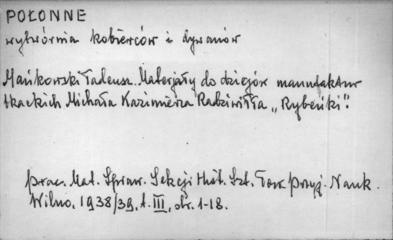 POŁONNE
wytwórnia kobierców i dywanów
Mańkowski Tadeusz. Materjały do dziejów manufaktur
tkackich Michała Kazimierza Radziwiłła „Rybeńki".
Prac. Mat. Spraw. Sekcji Hist. Szt. Tow. Przyj. Nauk.
Wilno, 1938/39, t. III, str. 1-18.